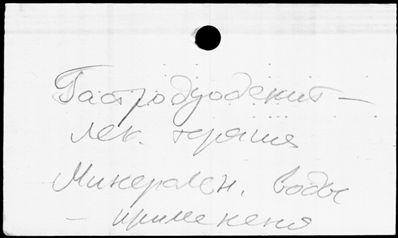 Гастродуоденит —
лек. терапия
Минерален. воды
— применение